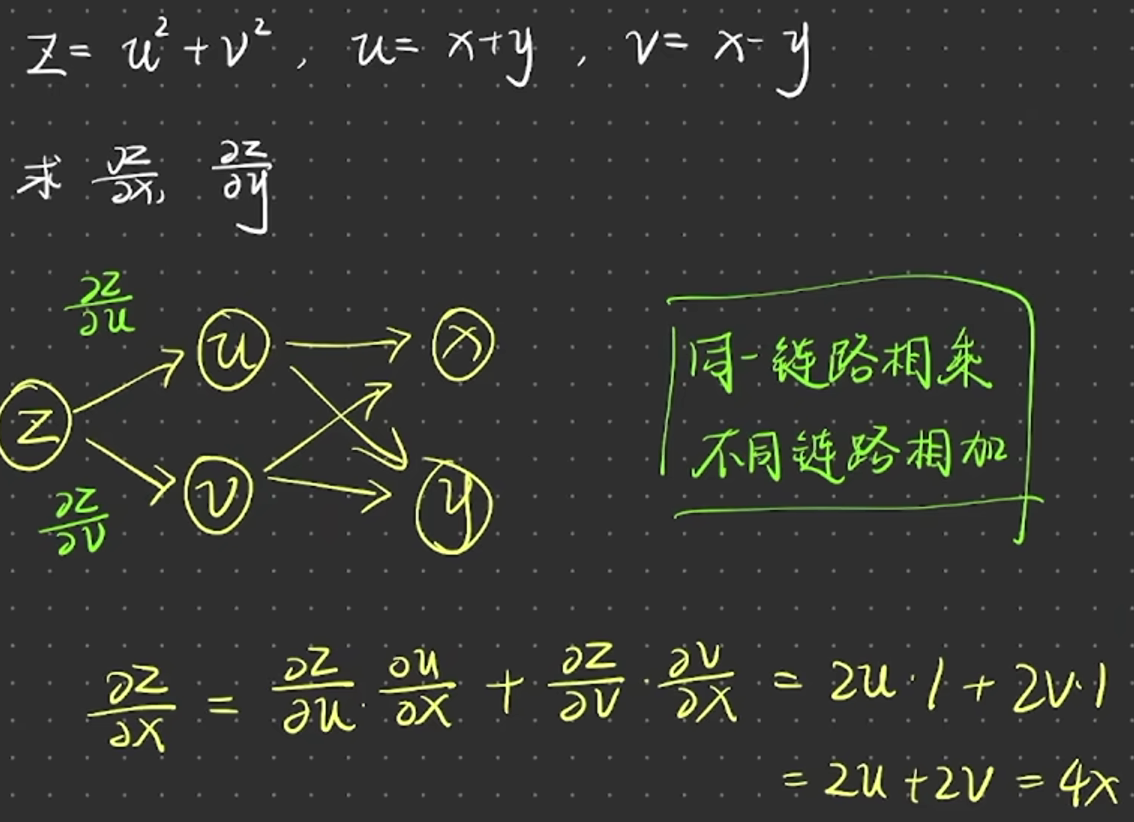 z = u² + v², u = x+y, v = x-y
求 ∂z/∂x, ∂z/∂y
∂z/∂u
u x
z
v y
∂z/∂v
同一链路相乘
不同链路相加
∂z/∂x = ∂z/∂u · ∂u/∂x + ∂z/∂v · ∂v/∂x = 2u·1 + 2v·1
= 2u + 2v = 4x